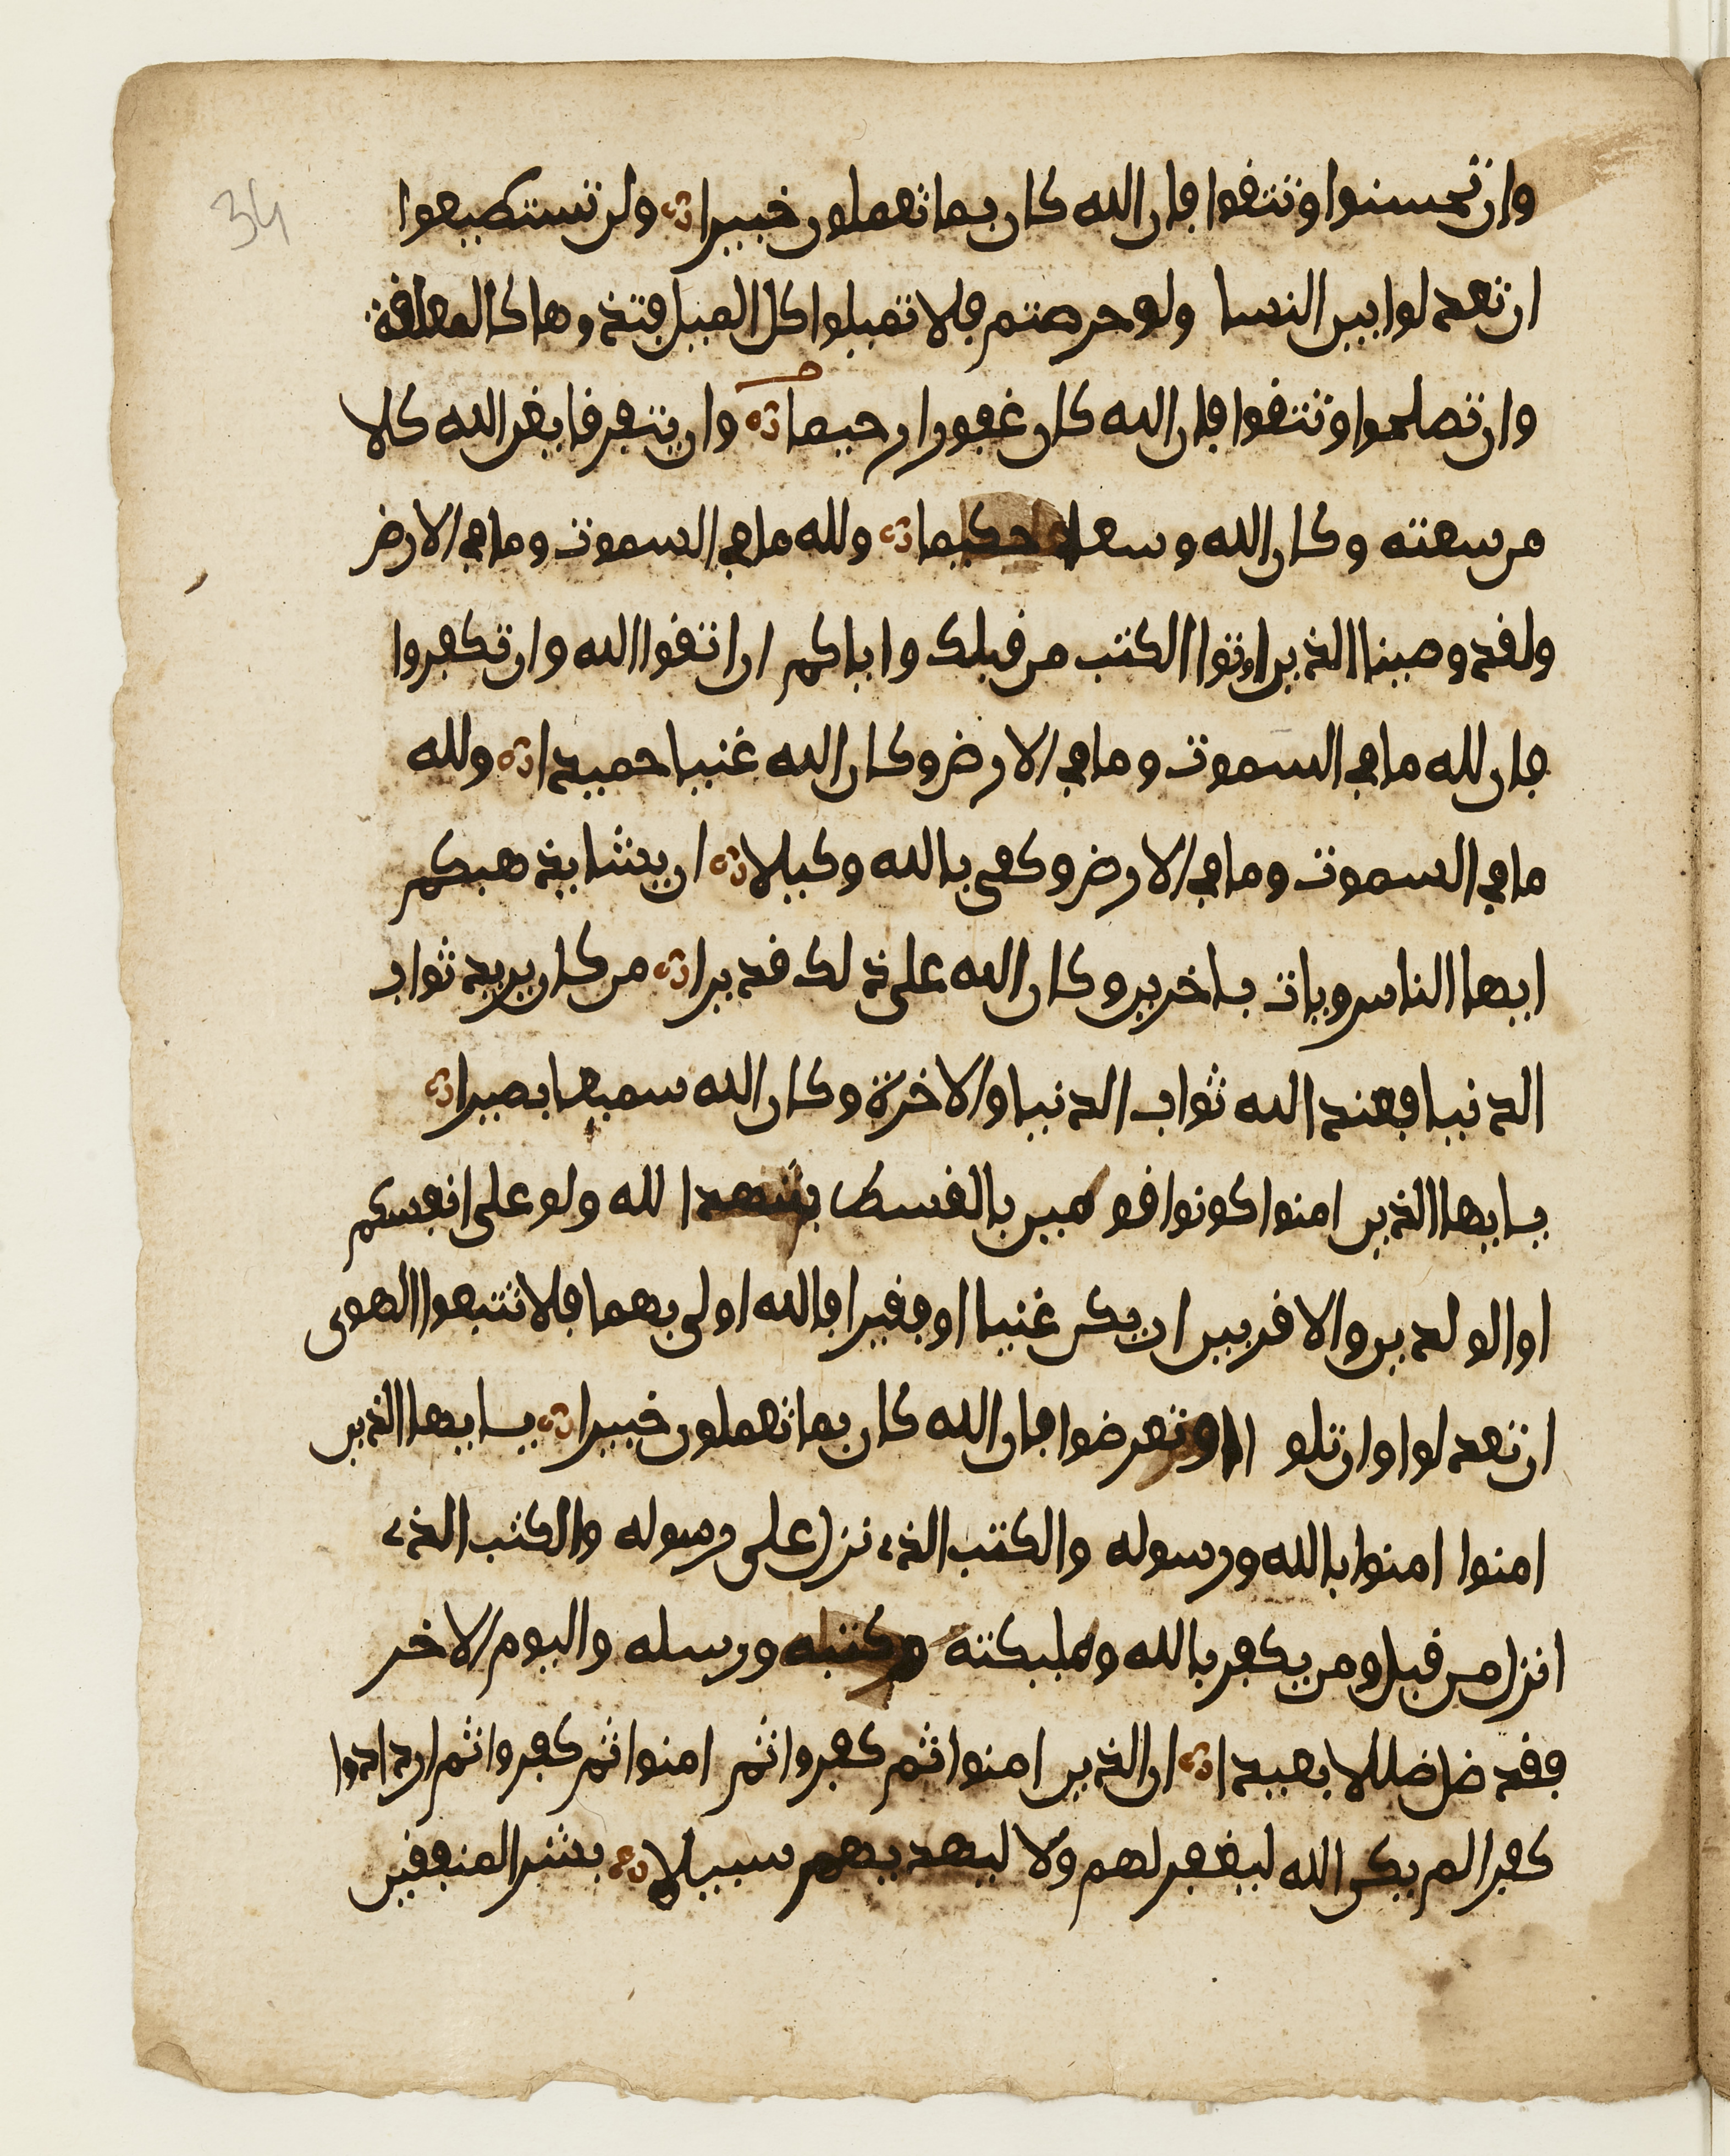 34
وان تحسنوا وتتقوا فان الله كان بما تعملون خبيرا ولن تستطيعوا
ان تعدلوا بين النسا ولو حرصتم فلا تميلوا كل الميل فتذروها كالمعلقة
وان تصلحوا وتتقوا فان الله كان غفورا رحيما وان يتفرقا يغن الله كلا
من سعته وكان الله وسعا حكيما ولله ما في السموت وما في الارض
ولقد وصينا الذين اوتوا الكتب من قبلك واياكم ان اتقوا الله وان تكفروا
فان لله ما في السموت وما في الارض وكان الله غنيا حميدا ولله
ما في السموت وما في الارض وكفى بالله وكيلا ان يشا يذهبكم
ايها الناس ويات باخرين وكان الله على ذلك قديرا من كان يريد ثواب
الدنيا فعند الله ثواب الدنيا والاخرة وكان الله سميعا بصيرا
يايها الذين امنوا كونوا قومين بالقسط شهدا لله ولو على انفسكم
او الولدين والاقربين ان يكن غنيا او فقيرا فالله اولى بهما فلا تتبعوا الهوى
ان تعدلوا وان تلوا او تعرضوا فان الله كان بما تعملون خبيرا يايها الذين
امنوا امنوا بالله ورسوله والكتب الذي نزل على رسوله والكتب الذي
انزل من قبل ومن يكفر بالله ومليكته وكتبه ورسله واليوم الاخر
فقد ضل ضللا بعيدا ان الذين امنوا ثم كفروا ثم امنوا ثم كفروا ثم ازدادوا
كفرا لم يكن الله ليغفر لهم ولا ليهديهم سبيلا بشر المنفقين